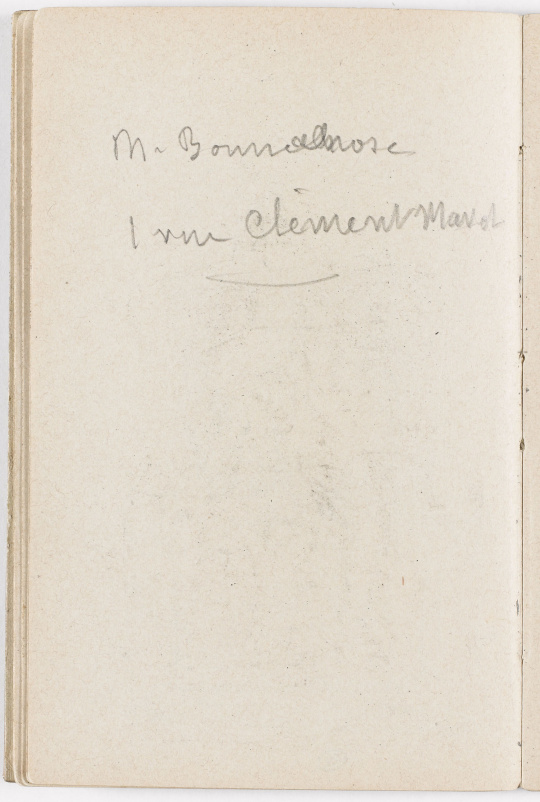 M.
1 rue Clément Marot